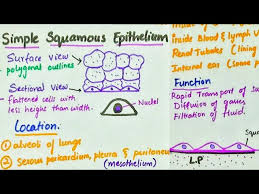 Simple Squamous Epithelium
Surface view
polygonal outlines
Sectional view
flattened cells with
less height than width.
Nuclei
Location:
① alveoli of lungs
② Serous pericardium, pleura & peritoneu
(mesothelium)
Inside Blood & lymph v
Renal Tubules (lining
Internal ear (some p
Function
Rapid Transport of su
Diffusion of gases
Filtration of fluid.
Squa
L.P